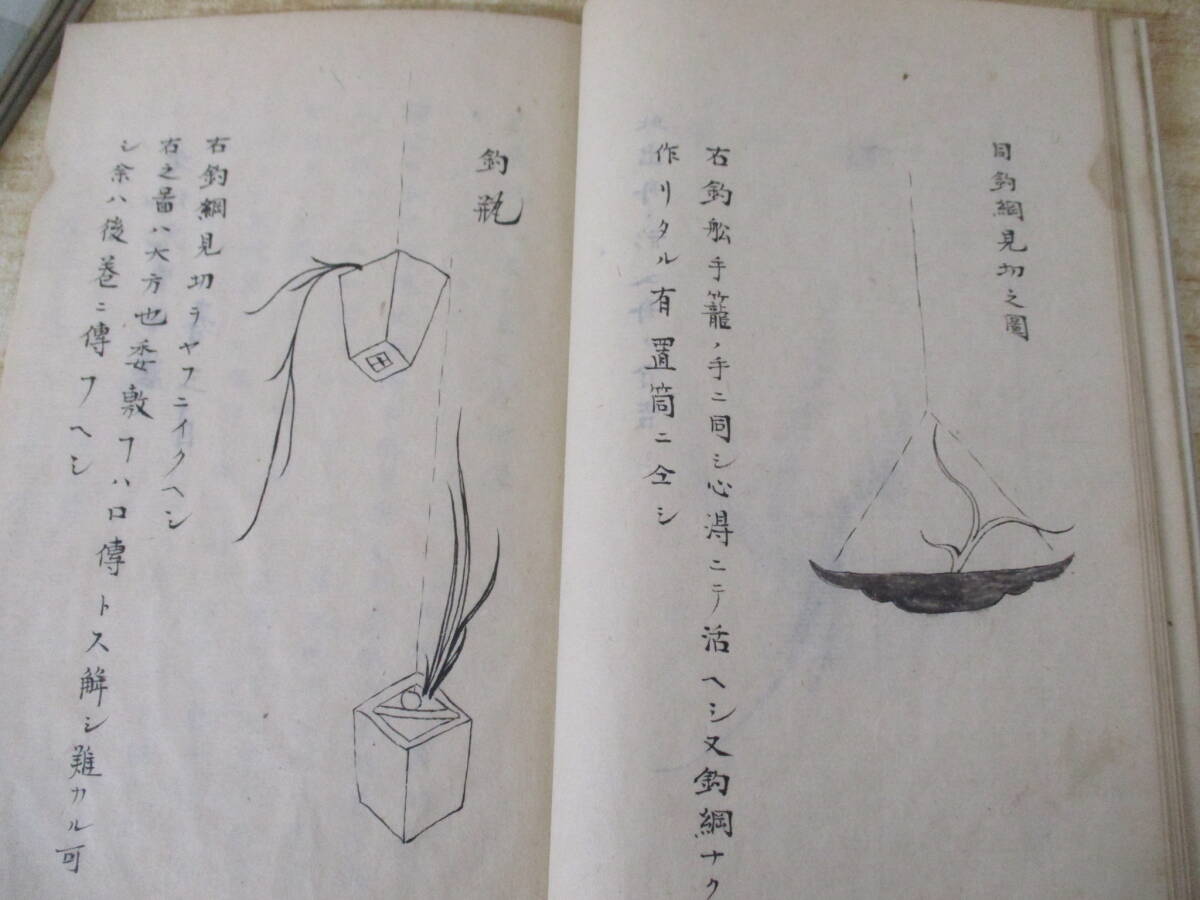 同釣綱見切之圖
右釣舩手籠ノ手ニ同シ心得ニテ活ヘシ又釣綱ナク
作リタル有置筒ニ仝シ
釣瓶
田
右釣綱見切ラヤフニイクヘシ
右之啚ハ大方也委敷フハ口傳トス解シ難カル可
シ余ハ後巻ニ傳フヘシ